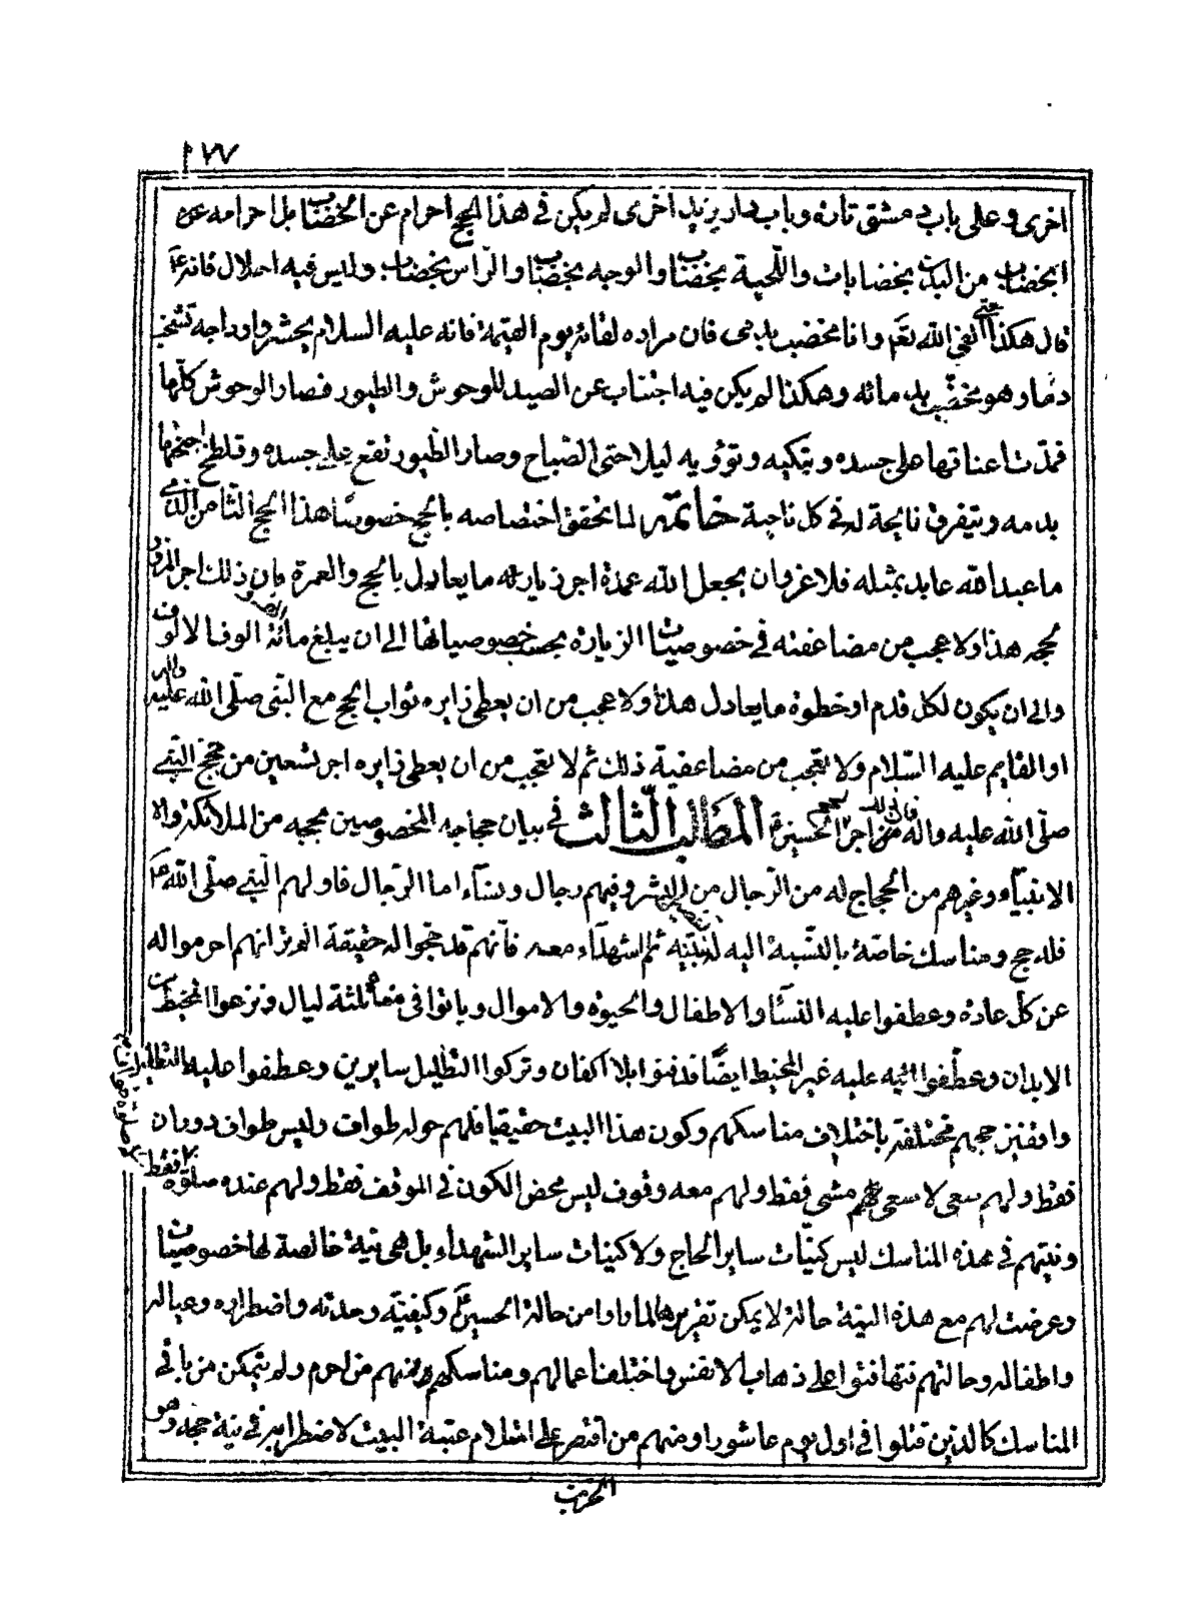 ١٧٧
اخرى وعلى باب دمشق تارة وباب دار يزيد اخرى لم يكن في هذا الحج احرام عن الخضاب بل احرامه عن
الخضاب من البدن بخضابات واللحية بخضاب والوجه بخضاب والراس بخضاب وليس فيه احلال فانه ع
قال هكذا حتى القى الله تعم وانا مخضب بدمى فان مراده لقائه يوم القيمة فانه عليه السلام يحشر واوداجه تشخب
دما وهو مخضب بدمائه وهكذا لم يكن فيه اجتناب عن الصيد للوحوش والطيور فصار الوحوش كلّها
فمدّت اعناقها على جسده وتبكيه وتؤويه ليلا حتى الصّباح وصار الطّيور تقع على جسده وتلطخ اجنحتها
بدمه ويتفرق نايحة له في كل ناحية خاتمة لما تحقق اختصاصه بالحج خصوصا هذا الحج الثامن الذي
ما عبد الله عابد بمثله فلا غرو ان يجعل الله عمدة اجر زيارته ما يعادل بالحج والعمرة فان ذلك اجر المزور
بحجه هذا ولا عجب من مضاعفته في خصوصيات الزيارة بحسب خصوصياتها الى ان يبلغ مائة الوف الالوف
والى ان يكون لكل قدم او خطوة ما يعادل هذا ولا عجب من ان يعطى زايره ثواب الحج مع النبى صلّى الله عليه واله
او القايم عليه السّلام ولا تعجب من مضاعفية ذلك ثم لا تعجب من ان يعطى زايره اجر تسعين من حجج النبي
صلّى الله عليه واله من اجر الحسين ع المطلب الثالث في بيان حجاجه المخصوصين بحجه من الملائكة والا
الانبياء وغيرهم من الحجاج له من الرّجال من البشر وفيهم رجال ونساء اما الرّجال فاولهم النبي صلّى الله ع
فله حج ومناسك خاصة بالنّسبة اليه ثم الشهداء معه فانّهم قد حجوا له حقيقة انهم احرموا له
عن كل عادة وعطفوا عليه النساء والاطفال والحيوة والاموال وباتوا في ثلثة ليال ونزعوا المخيط من
الابدان وعطفوا اليه عليه غير المخيط ايضًا فدفنوا بلا اكفان وتركوا التظليل سايرين وعطفوا عليه
وا حجهم مختلفة باختلاف مناسكهم وكون هذا البيت حقيقيا فلهم حوله طواف وليس طواف دوران
فقط ولهم سعى لا سعى مشى فقط ولهم معه وقوف ليس محض الكون في الموقف فقط ولهم عنده صلوة لا فقط
ونيتهم في هذه المناسك ليس كنيّات ساير الحاج ولا كنيات ساير الشهداء بل هي نية خالصة لها خصوصيات
وعرضت لهم مع هذه النية حالة لا يمكن تقريرها لما راوا من حالة الحسين ع وكيفيته وحدته واضطراره وعياله
واطفاله وحالتهم فتهافتوا على ذهاب الانفس واختلف اعمالهم ومناسكهم فمنهم من احرم ولم يتمكن من باقي
المناسك كالذين قتلوا في اول يوم عاشورا ومنهم من اقتصر على استلام عتبة البيت لاضطرابه في نية حجه وهو
الحر بن